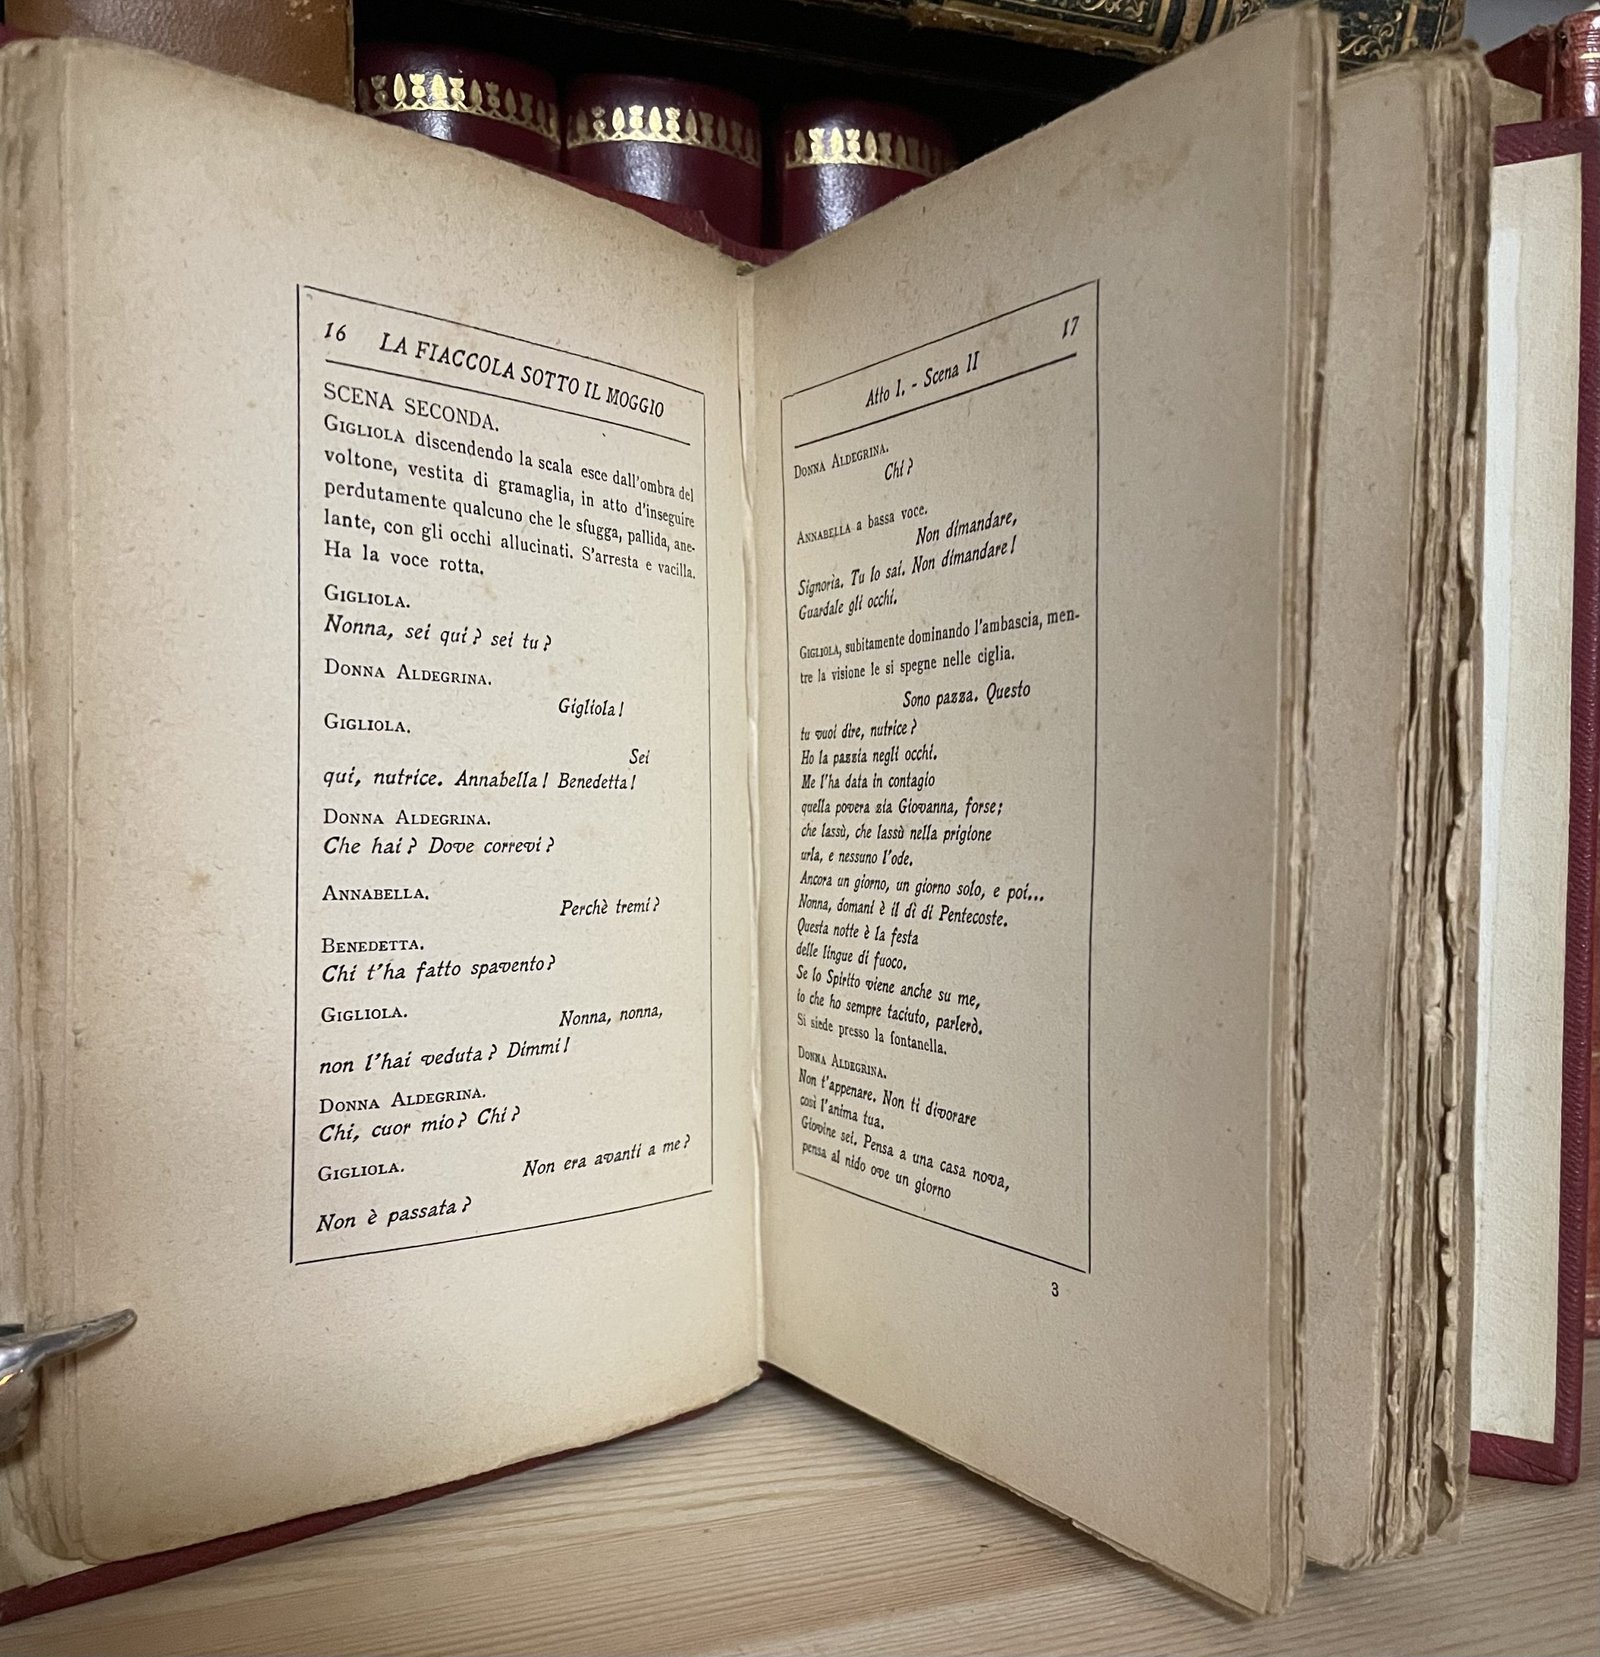 16 LA FIACCOLA SOTTO IL MOGGIO
SCENA SECONDA.
GIGLIOLA discendendo la scala esce dall'ombra del
voltone, vestita di gramaglia, in atto d'inseguire
perdutamente qualcuno che le sfugga, pallida, ane-
lante, con gli occhi allucinati. S'arresta e vacilla.
Ha la voce rotta.
GIGLIOLA.
Nonna, sei qui? sei tu?
DONNA ALDEGRINA.
Gigliola!
GIGLIOLA.
Sei
qui, nutrice. Annabella! Benedetta!
DONNA ALDEGRINA.
Che hai? Dove correvi?
ANNABELLA.
Perchè tremi?
BENEDETTA.
Chi t'ha fatto spavento?
GIGLIOLA.
Nonna, nonna,
non l'hai veduta? Dimmi!
DONNA ALDEGRINA.
Chi, cuor mio? Chi?
GIGLIOLA.
Non era avanti a me?
Non è passata?
Atto I. - Scena II 17
DONNA ALDEGRINA.
Chi?
ANNABELLA a bassa voce.
Non dimandare,
Signoria. Tu lo sai. Non dimandare!
Guardale gli occhi.
GIGLIOLA, subitamente dominando l'ambascia, men-
tre la visione le si spegne nelle ciglia.
Sono pazza. Questo
tu vuoi dire, nutrice?
Ho la pazzia negli occhi.
Me l'ha data in contagio
quella povera zia Giovanna, forse;
che lassù, che lassù nella prigione
urla, e nessuno l'ode.
Ancora un giorno, un giorno solo, e poi...
Nonna, domani è il dì di Pentecoste.
Questa notte è la festa
delle lingue di fuoco.
Se lo Spirito viene anche su me,
io che ho sempre taciuto, parlerò.
Si siede presso la fontanella.
DONNA ALDEGRINA.
Non t'appenare. Non ti divorare
così l'anima tua.
Giovine sei. Pensa a una casa nova,
pensa al nido ove un giorno
3